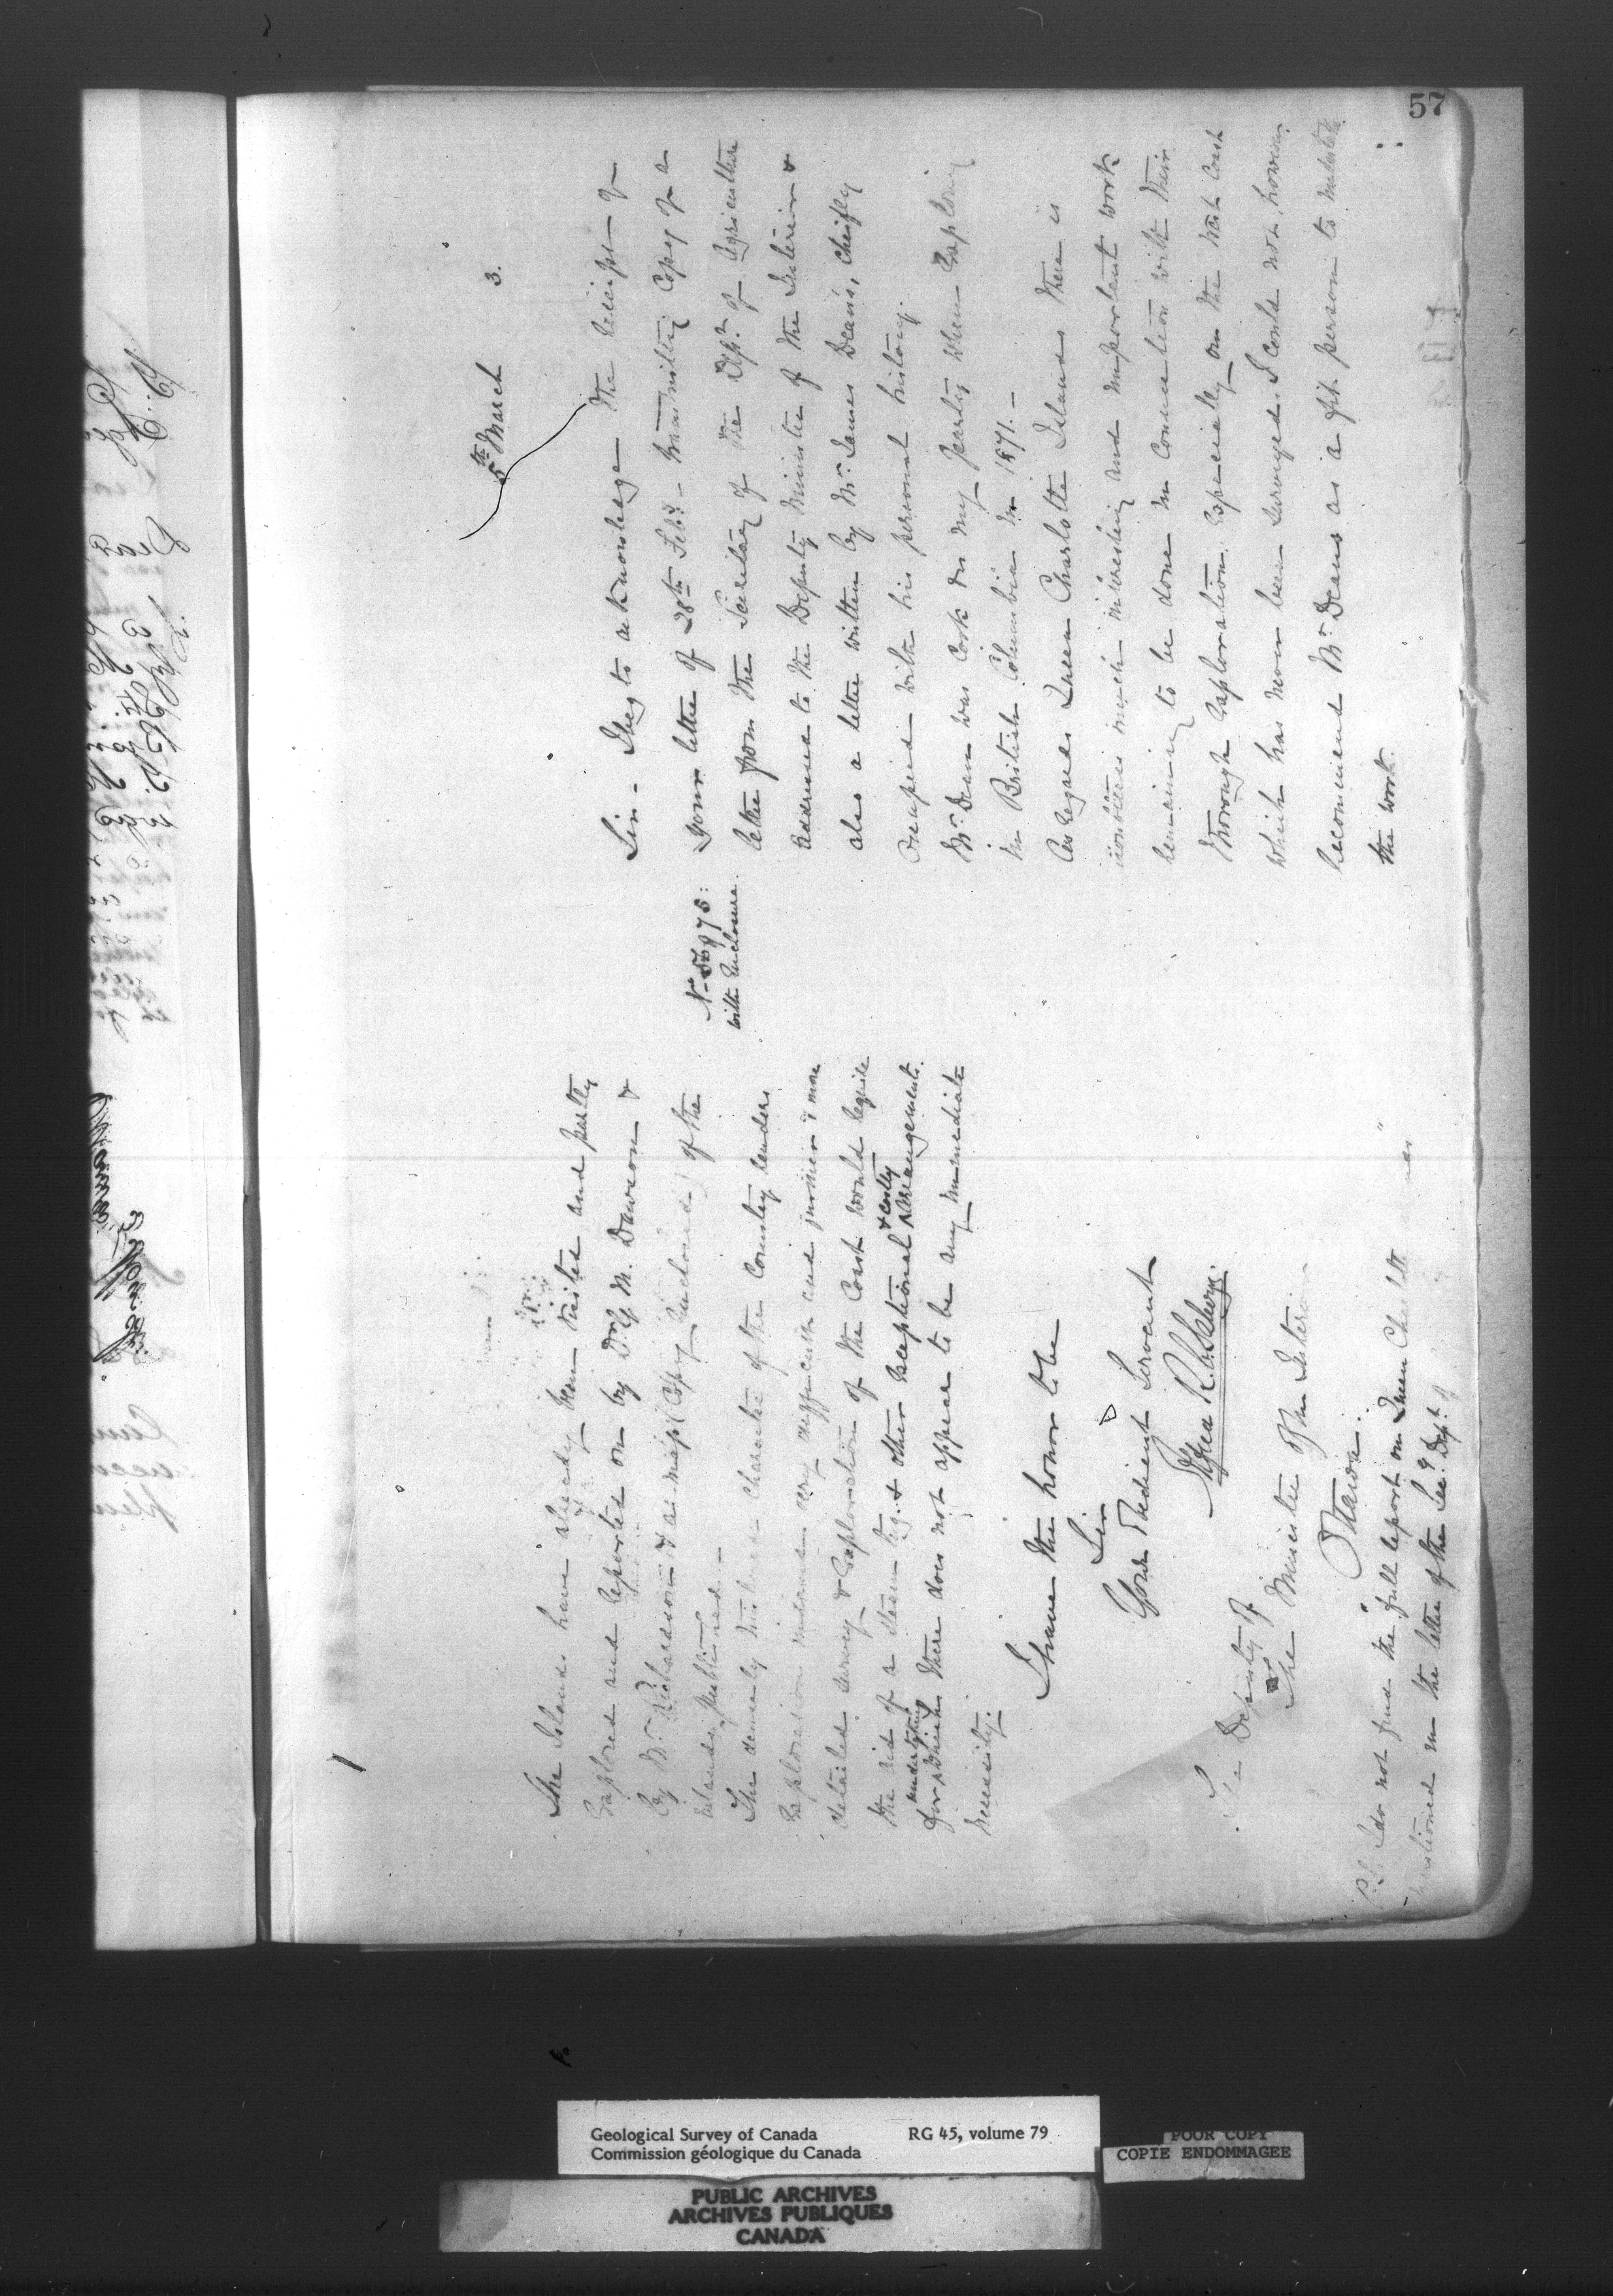 57
5th March 3.
Sir - I beg to acknowledge the receipt of
No 56975: your letter of 28th Feby - transmitting Copy of a
with Enclosure. letter from the Secretary of the Dept. of Agriculture
addressed to the Deputy Minister of the Interior &
also a letter written by Mr. James Deans, Cheifly
Occupied with his personal history.
Mr. Dean was Cook in my party when Exploring
in British Columbia in 1871. -
As regards Queen Charlotte Islands there is
doubtless much interesting and important work
remaining to be done in Connection with their
thorough Exploration. Especially on the West Coast
which has never been surveyed. I could not however
recommend Mr. Deans as a fit person to undertake
the work.
The Islands have already been visited and partly
Explored and reported on by Dr. G. M. Dawson &
by Mr. Richardson & a map (Copy Enclosed) of the
Islands published. -
The densely timbered character of the Country renders
Exploration inland very difficult and further & more
detailed survey & Exploration of the Coast would require
the aid of a steam tug. & other Exceptional & costly Arrangements.
for undertaking which there does not appear to be any immediate
necessity.
I have the honor to be
Sir
Your Obedient Servant
Alfred R. C. Selwyn.
To Deputy of
The Minister of the Interior
Ottawa.
P.S. I do not find the "full report on Queen Charlotte
mentioned in the letter of the Sec. Dept. of
Geological Survey of Canada RG 45, volume 79
Commission géologique du Canada
POOR COPY
COPIE ENDOMMAGEE
PUBLIC ARCHIVES
ARCHIVES PUBLIQUES
CANADA